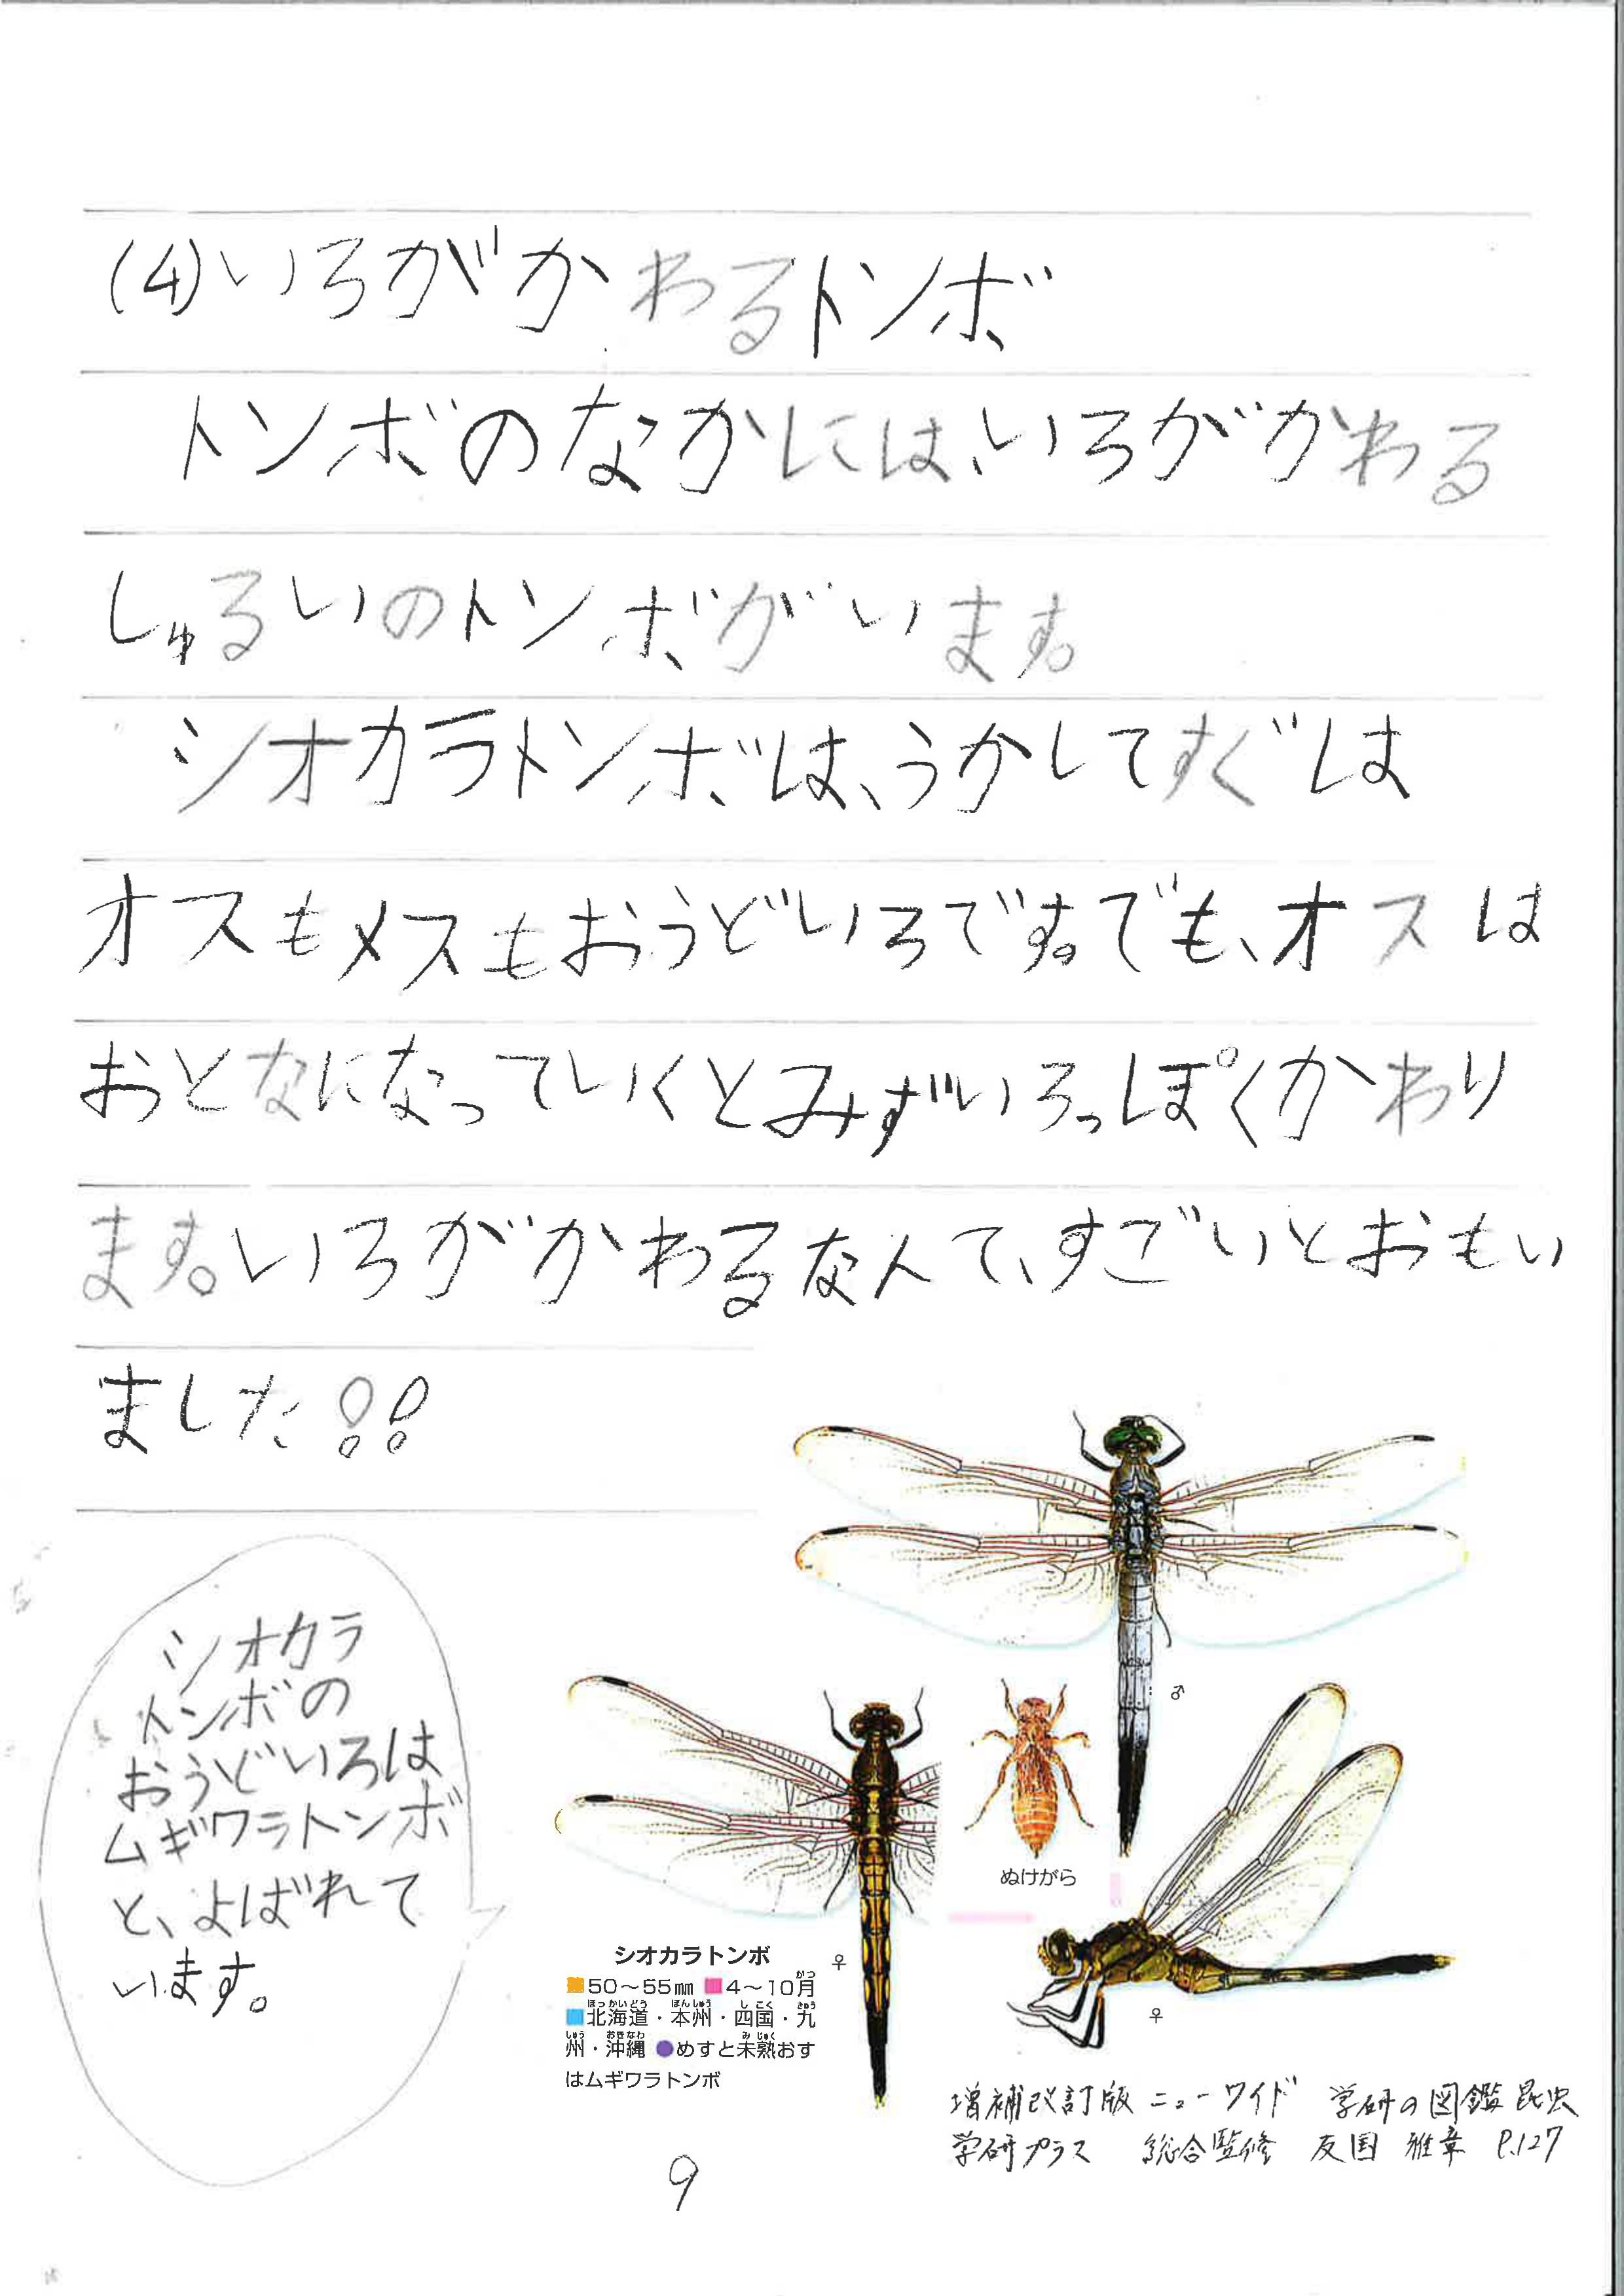 (4)いろがかわるトンボ
トンボのなかには、いろがかわる
しゅるいのトンボがいます。
シオカラトンボは、うかしてすぐは
オスもメスもおうどいろです。でも、オスは
おとなになっていくとみずいろっぽくかわり
ます。いろがかわるなんて、すごいとおもい
ました!!
シオカラ
トンボの
おうどいろは
ムギワラトンボ
と、よばれて
います。
♂
ぬけがら
♀
♀
シオカラトンボ
50〜55㎜ 4〜10月
北海道・本州・四国・九
州・沖縄 めすと未熟おす
はムギワラトンボ
増補改訂版 ニューワイド 学研の図鑑 昆虫
学研プラス 総合監修 友国 雅章 P.127
9